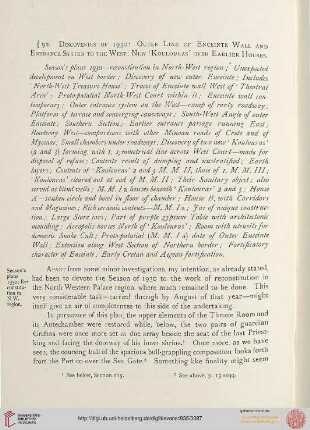 § 92. Discoveries of 1930: Outer Line of Enceinte Wall and
Entrance System to the West; New 'Kouloulas' over Earlier Houses.
Season's plans 1930—reconstitution in North-West region; Unexpected
development on West border; Discovery of new outer Enceinte; Includes
'North-West Treasure House'; Traces of Enceinte wall West of 'Theatral
Area'; Proto-palatial North-West Court within it; Enceinte wall con-
temporary; Outer entrance system on the West—ramp of early roadway;
Platform of terrace and converging causeways; South-West Angle of outer
Enceinte; Southern Section; Earlier entrance passage running East;
Roadway West—comparisons with other Minoan roads of Crete and of
Mycenae; Small chambers under roadway; Discovery of two new 'Koulouras'
(2 and 3) forming, with 1, symmetrical line across West Court—made for
disposal of refuse; Contents result of dumping and unstratified; Earth
layers; Contents of 'Kouloura' 2 and 3 M. M. II, those of 1, M. M. III;
'Kouloura' covered out at end of M. M. II; Their Sanitary object; also
served as blind wells; M. M. I a houses beneath 'Kouloura' 2 and 3; House
A—sunken circle and bowl in floor of chamber; House B, with Corridors
and Magazines; Rich ceramic contents—M. M. I a; Jar of unique construc-
tion; Large Store jars; Part of purple gypsum Table with architectonic
moulding; Acropolis houses North of 'Kouloura'; Room with utensils for
domestic Snake Cult; Proto-palatial (M. M. I a) date of Outer Enceinte
Wall; Extension along West Section of Northern border; Fortificatory
character of Enceinte; Early Cretan and Aegean fortification.
Season's
plans
1930: Re-
constitu-
tion in
N.W.
region.
Apart from some minor investigations, my intention, as already stated,
had been to devote the Season of 1930 to the work of reconstitution in
the North-Western Palace region, where much remained to be done. This
very considerable task—carried through by August of that year—might
itself give an air of completeness to this side of the undertaking.
In pursuance of this plan, the upper elements of the Throne Room and
its Antechamber were restored while, below, the two pairs of guardian
Griffins were once more set as due array beside the seat of the last Priest-
king and facing the doorway of his inner shrine.¹ Once more, as we have
seen, the coursing bull of the spacious bull-grappling composition looks forth
from the Portico over the Sea Gate.² Something like finality might seem
¹ See below, Section 115.
² See above, p. 13 seqq.
http://digi.ub.uni-heidelberg.de/diglit/evans1935a/0087